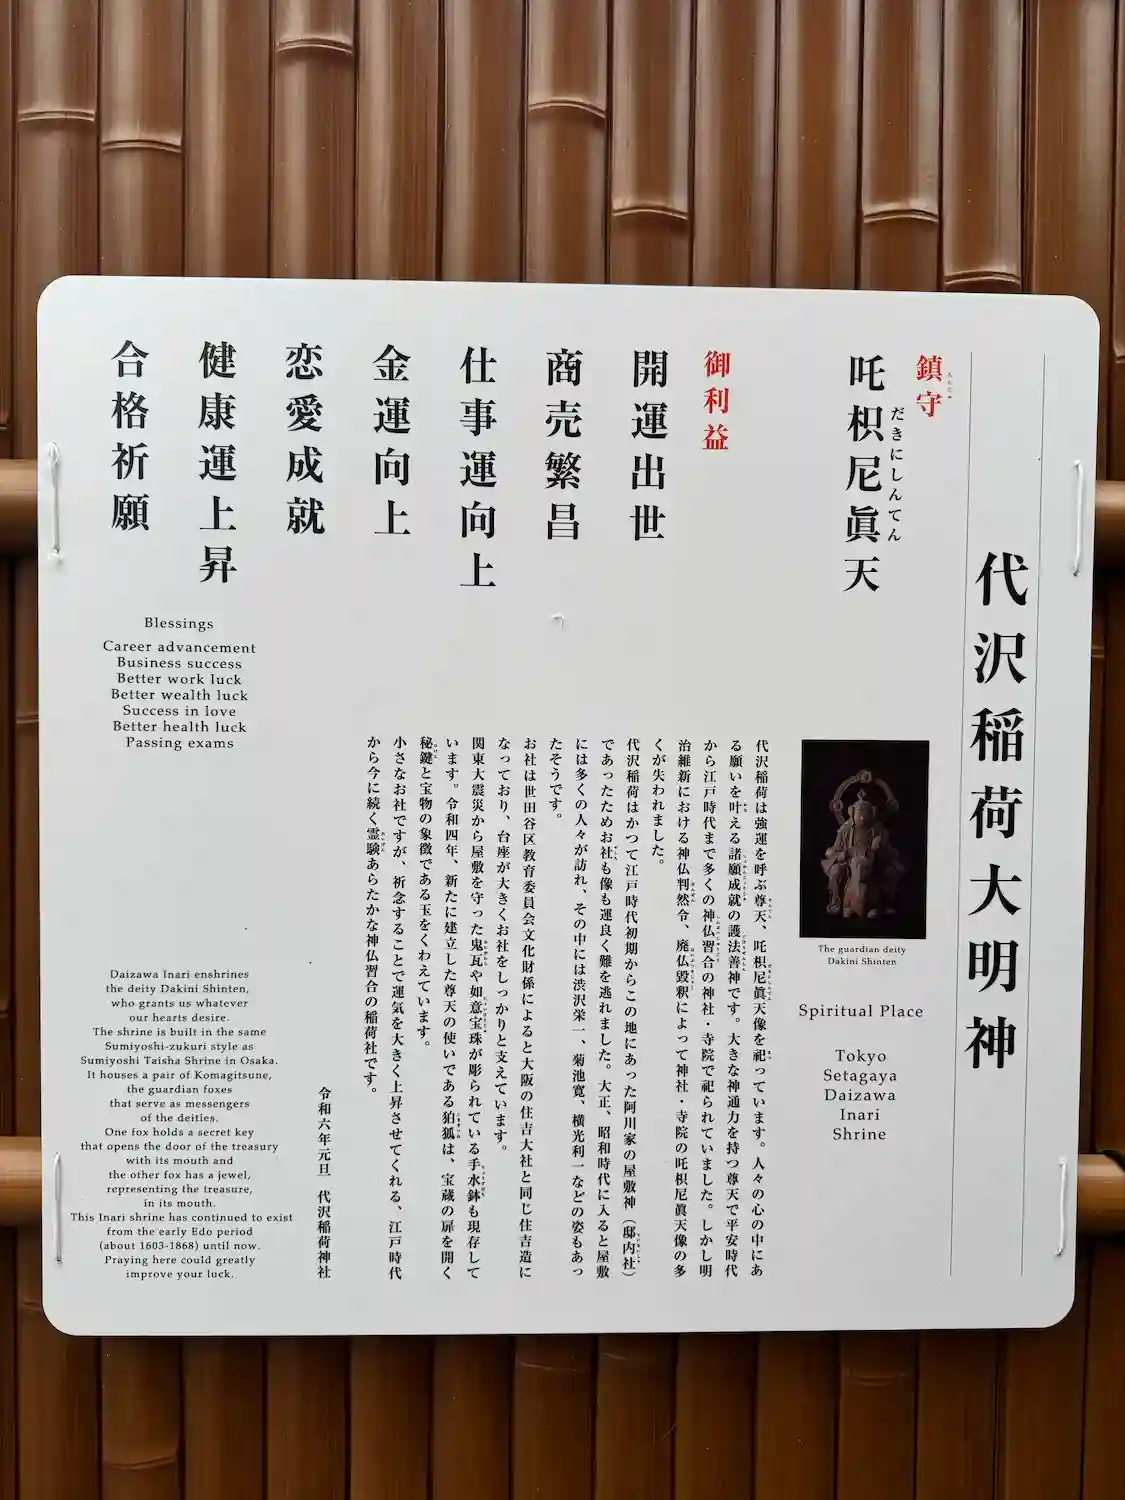 代沢稲荷大明神
鎮守
ちんじゅ
吒枳尼眞天
だきにしんてん
御利益
開運出世
商売繁昌
仕事運向上
金運向上
恋愛成就
健康運上昇
合格祈願
The guardian deity
Dakini Shinten
Spiritual Place
Tokyo
Setagaya
Daizawa
Inari
Shrine
代沢稲荷は強運を呼ぶ尊天、吒枳尼眞天像を祀っています。人々の心の中にあ
る願いを叶える諸願成就の護法善神です。大きな神通力を持つ尊天で平安時代
から江戸時代まで多くの神仏習合の神社・寺院で祀られていました。しかし明
治維新における神仏判然令、廃仏毀釈によって神社・寺院の吒枳尼眞天像の多
くが失われました。
代沢稲荷はかつて江戸時代初期からこの地にあった阿川家の屋敷神（邸内社）
であったためお社も像も運良く難を逃れました。大正、昭和時代に入ると屋敷
には多くの人々が訪れ、その中には渋沢栄一、菊池寛、横光利一などの姿もあっ
たそうです。
お社は世田谷区教育委員会文化財係によると大阪の住吉大社と同じ住吉造に
なっており、台座が大きくお社をしっかりと支えています。
関東大震災から屋敷を守った鬼瓦や如意宝珠が彫られている手水鉢も現存して
います。令和四年、新たに建立した尊天の使いである狛狐は、宝蔵の扉を開く
秘鍵と宝物の象徴である玉をくわえています。
小さなお社ですが、祈念することで運気を大きく上昇させてくれる、江戸時代
から今に続く霊験あらたかな神仏習合の稲荷社です。
令和六年元旦　代沢稲荷神社
Blessings
Career advancement
Business success
Better work luck
Better wealth luck
Success in love
Better health luck
Passing exams
Daizawa Inari enshrines
the deity Dakini Shinten,
who grants us whatever
our hearts desire.
The shrine is built in the same
Sumiyoshi-zukuri style as
Sumiyoshi Taisha Shrine in Osaka.
It houses a pair of Komagitsune,
the guardian foxes
that serve as messengers
of the deities.
One fox holds a secret key
that opens the door of the treasury
with its mouth and
the other fox has a jewel,
representing the treasure,
in its mouth.
This Inari shrine has continued to exist
from the early Edo period
(about 1603-1868) until now.
Praying here could greatly
improve your luck.